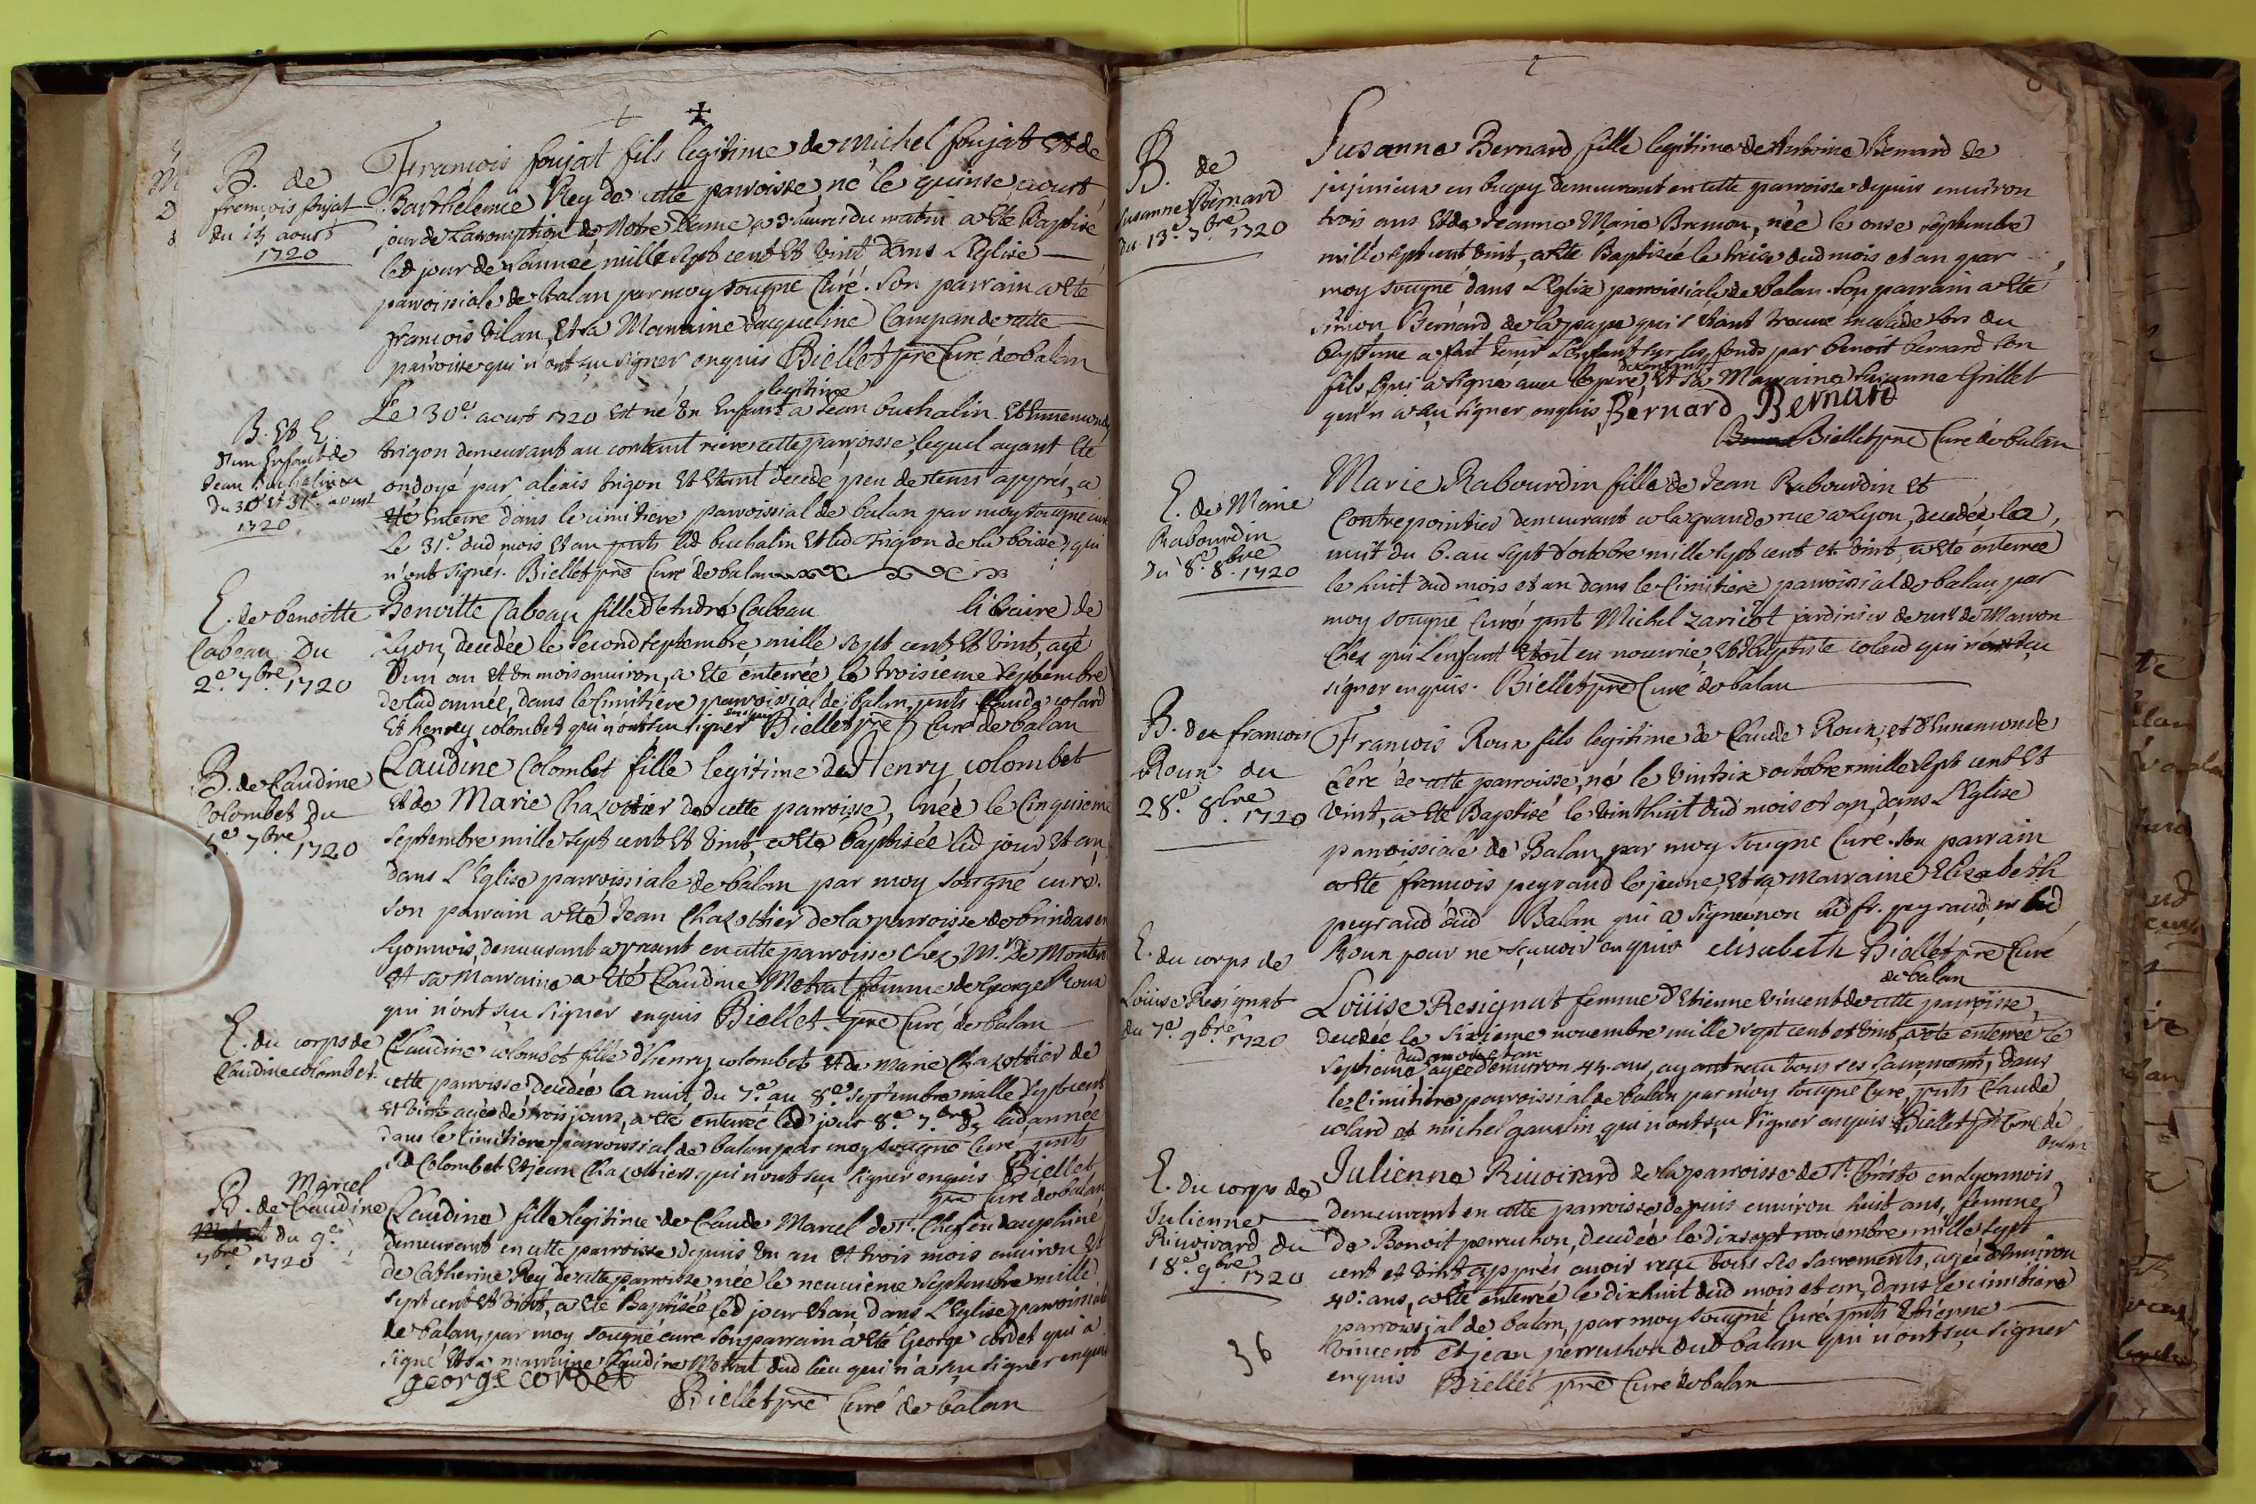 B. de
francois foujat
du 15 aoust
1720
Francois foujat fils legitime de Michel foujat et de
Barthelemie Rey de cette parroisse né le quinse aoust
jour de Lassomption de Notre Dame a 3 heures du matin a eté Baptisé
led jour de lannée mille sept cent et vint dans L'Eglise
parroissiale de balan par moy sougné Curé. Son parrain a eté
francois vilan, et sa Marraine Jacqueline Campan de cette
parroisse qui n'ont sçu signer enquis Biellet pre Curé de balan
B. et E.
d'un Enfant de
Jean buchalin
du 30e et 31e aoust
1720
legitime
Le 30e. aoust 1720 est né Un Enfant a Jean buchalin et Ennemonde
trigon demeurant au content riere cette parroisse, lequel ayant eté
ondoyé par alexis trigon et etant decedé peu de tems apprés, a
eté enterré dans le cimitiere parroissial de balan par moy sougné curé
Le 31e. dud mois et an pnts led buchalin et led Trigon de la boisse, qui
n'ont signés. Biellet pre Curé de balan
E. de benoitte
Cabeau Du
2e. 7bre. 1720
Benoitte Cabeau fille d'André Cabeau libraire de
Lyon, decedée le second septembre mille sept cent et vint, agé
d'un an et un mois environ, a eté enterrée le troisieme septembre
de lad année, dans le cimitiere parroissial de balan, pnts Claude colard
enquis
et henry colombet qui n'ont sçu signer Biellet pre Curé de balan
B. de Claudine
Colombet du
5e. 7bre. 1720
Claudine Colombet fille legitime de Henry colombet
et de Marie Chazottier de cette parroisse, née le Cinquieme
septembre mille sept cent et vint, a eté baptisée led jour et an
dans L'Eglise parroissiale de balan par moy sougné curé.
Son parrain a eté Jean Chazottier de la parroisse de brindas en
lyonnois, demeurant a present en cette parroisse chez Mr. De
et sa Marraine a eté Claudine Motrat femme de George Roux
qui n'ont sçu signer enquis Biellet pre Curé de balan
E. du corps de
Claudine colombet
Claudine colombet fille d'henry colombet et de marie Chazottier de
cette parroisse decedée la nuit du 7e. au 8e septembre mille sept cent
et vint agée de trois jours, a eté enterrée led jour 8e. 7.bre de ladannée
dans le cimitiere parroissial de balan par moy sougné Curé, pnts
led Colombet et jean Chazottier qui n'ont sçu signer enquis Biellet
pre Curé de balan
Marcel
B. de Claudine
du 9e.
7bre. 1720
Claudine fille legitime de Claude Marcel de St. Chef en dauphiné
demeurant en cette parroisse depuis un an et trois mois environ et
de Catherine Rey de cette parroisse née le neuvieme septembre mille
sept cent et vint, a eté Baptisée led jour et an, dans L'Eglise parroissiale
de balan, par moy sougné curé son parrain a eté George cordet qui a
signé et sa marraine Claudine Motrat dud lieu qui n'a sçu signer enquis
george cordet
Biellet pre Curé de balan
B. de
Susanne Bernard
du 13e. 7bre. 1720
Susanne Bernard fille legitime de Antoine Bernard de
jujurieux en bugey demeurant en cette parroisse depuis environ
trois ans et de Jeanne Marie Bremon, née le onse septembre
mille sept cent vint, a eté Baptisée le treise dud mois et an par
moy sougné dans L'Eglise parroissiale de balan. Son parrain a eté
Simon Bernard de la pape qui s'etant trouvé malade lors du
baptême a fait tenir L'enfant sur les fonds par benoit bernard son
fils, qui a signé avec le pere, et sa Marraine Susanne Grillet
qui n'a sçu signer enquis Bernard Bernard
Biellet pre Curé de balan
E. de Marie
Rabourdin
Du 8e. 8bre. 1720
Marie Rabourdin fille de Jean Rabourdin et
Contrepointier demeurant a la grande rue a Lyon, decedée, la
nuit du 6. au sept d'octobre mille sept cent et vint, a eté enterrée
le huit dud mois et an dans le Cimitiere parroissial de balan, par
moy sougné Curé, pnt Michel Zaricot jardinier de Mr de Marron
Chez qui L'enfant etoit en nourrice, et Baptiste colard qui n'ont sçu
signer enquis. Biellet pre Curé de balan
B. de francois
Roux du
28e. 8bre. 1720
Francois Roux fils legitime de Claude Roux, et d'Ennemonde
Clere de cette parroisse, né le vintsix octobre mille sept cent et
vint, a eté Baptisé le vinthuit dud mois et an, dans L'Eglise
parroissiale de Balan, par moy sougné Curé. Son parrain
a eté francois peyraud le jeune, et sa marraine Elizabeth
peyraud dud Balan qui a signé, non led fr. peyraud, ni led
Roux pour ne sçavoir enquis elisabeth Biellet pre Curé
de balan
E. du corps de
Loüise Resignat
du 7e. 9bre. 1720
Loüise Resignat femme d'Etienne vincent de cette parroisse,
decedée le sixieme novembre mille sept cent et vint, a eté enterrée le
dud mois et an
septieme agée d'environ 44. ans, ayant receu tous ses sacrements, dans
le cimitiere parroissial de balan par moy sougné Curé, pnts Claude
colard et michel gauslin qui n'ont sçu signer enquis Biellet pre Curé de
balan
E. du corps de
Julienne
Rivoirard du
18e. 9bre. 1720
Julienne Rivoirard de la parroisse de St. Christo en Lyonnois
demeurant en cette parroisse depuis environ huit ans, femme
de Benoit perruchon, decedée le dixsept novembre mille sept
cent et vint apprés avoir reçu tous ses sacrements, agée d'environ
40. ans, a eté enterrée le dixhuit dud mois et an, dans le cimitiere
parroissial de balan, par moy sougné Curé pnts Etienne
vincent et jean perruchon dud balan qui n'ont sçu signer
enquis Biellet pre Curé de balan
36